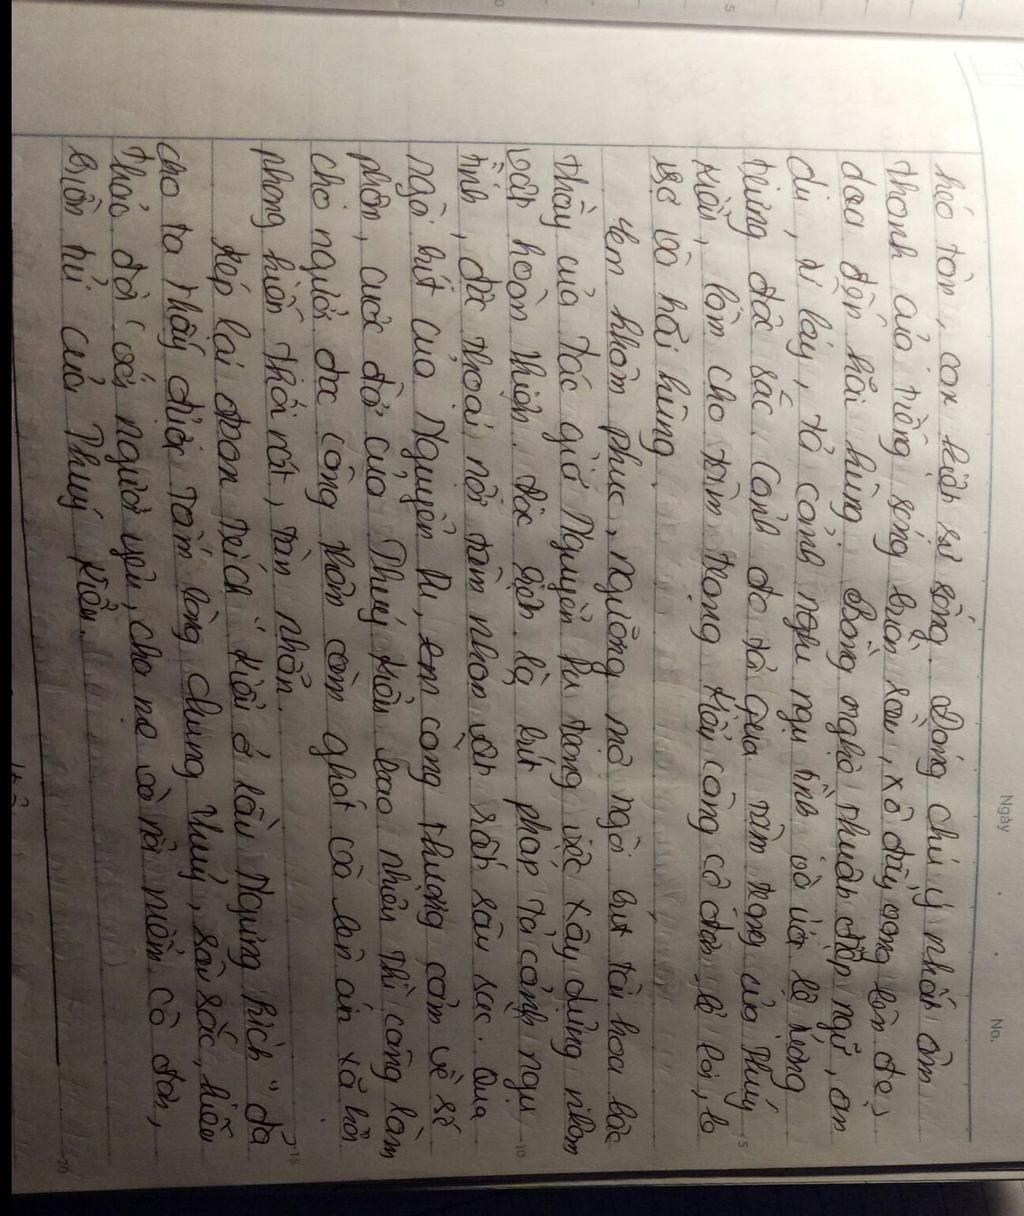 Ngày
No.
hó tàn, con kiệt sự sống. Đáng chú ý nhất âm
thanh của tiếng sóng biển xôn xao, xô đẩy oang lên đe
dọa đến hãi hùng. Bằng nghệ thuật điệp ngữ, ẩn
dụ, từ láy, tả cảnh ngụ ngụ tình và ước lệ tượng
trưng đặc sắc. Cảnh đó tả qua tâm trạng của Thúy
Kiều, làm cho tâm trạng Kiều càng cô đơn, lẻ loi, lo
sợ và hãi hùng.
Em khâm phục, ngưỡng mộ ngòi bút tài hoa bậc
thầy của tác giả Nguyễn Du trong việc xây dựng nhân
vật hoàn thiện. Đặc biệt là bút pháp tả cảnh ngụ
tình, độc thoại nội tâm nhân vật rất sâu sắc. Qua
ngòi bút của Nguyễn Du, em càng thương cảm về số
phận, cuộc đời của Thúy Kiều bao nhiêu thì càng làm
cho người đọc công thẩm căm ghét và lên án xã hội
phong kiến thối nát, tàn nhẫn.
Khép lại đoạn trích "Kiều ở lầu Ngưng Bích" đã
cho ta thấy được tấm lòng chung thủy, sâu sắc, hiếu
thảo đối với người yêu, cha mẹ và nỗi niềm cô đơn,
buồn tủi của Thúy Kiều.
5
10
15
20